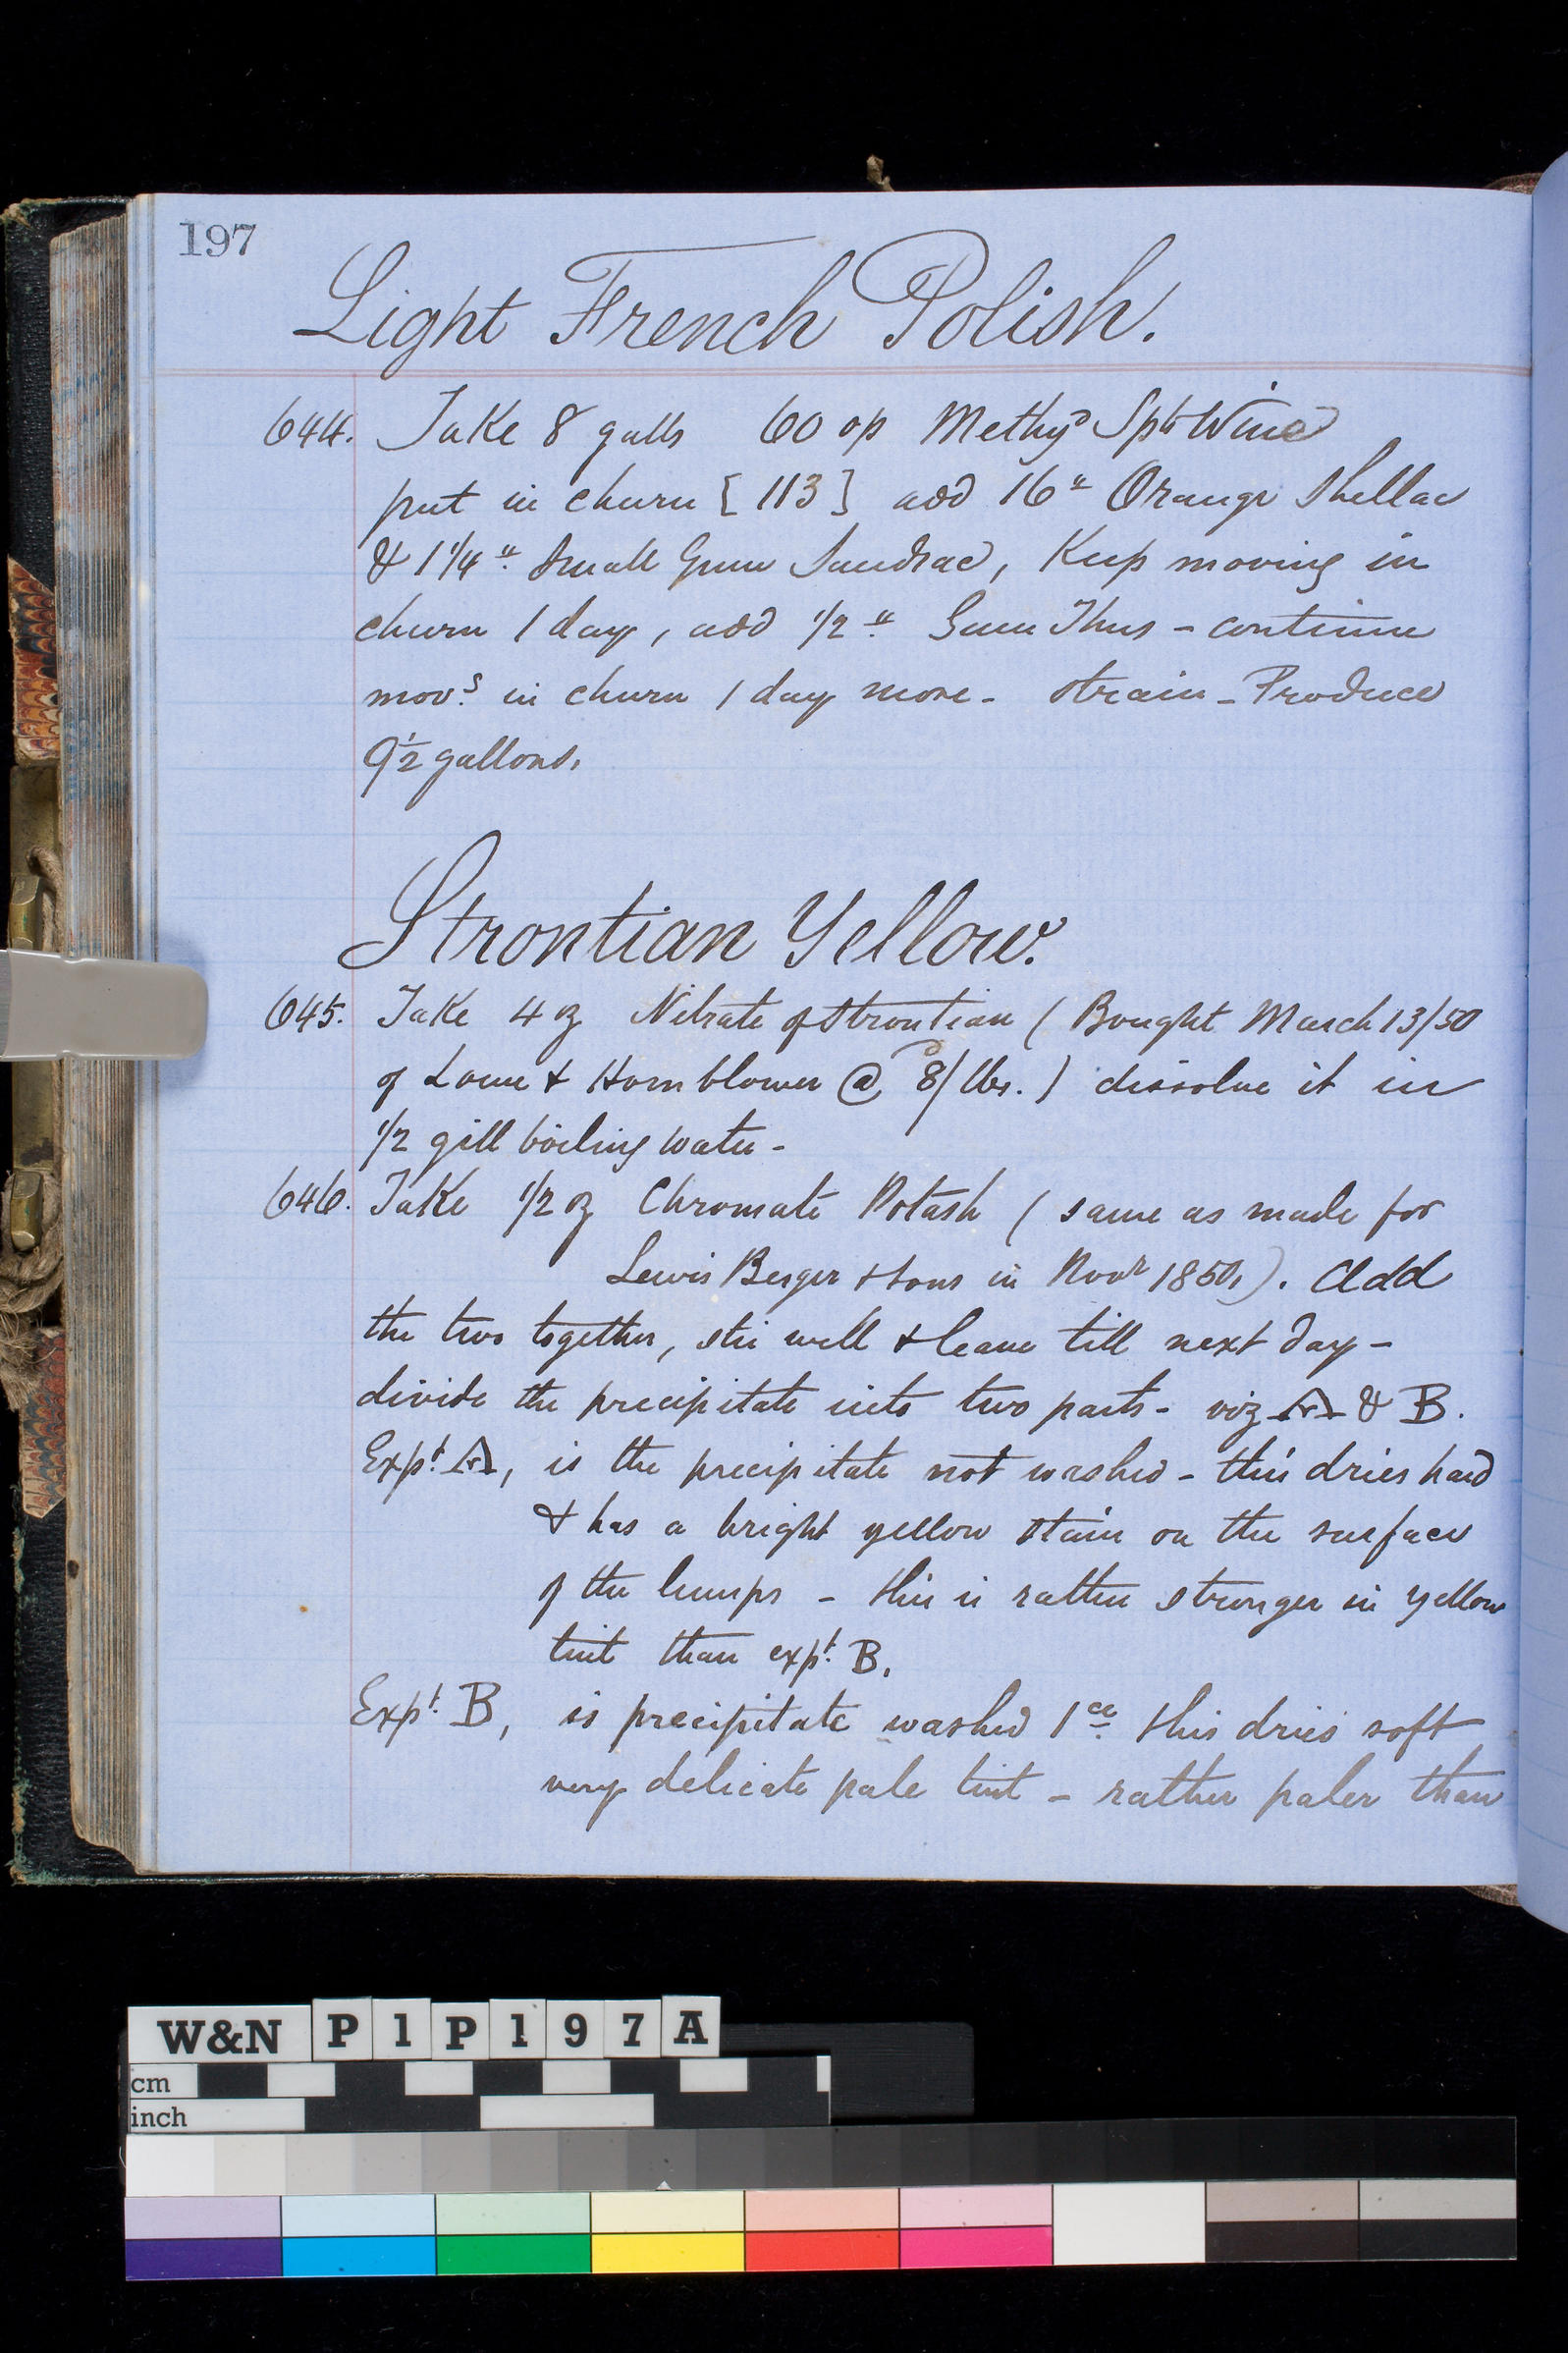 197
Light French Polish.
644. Take 8 galls 60 op Methyd Spts Wine
put in churn [113] add 16 lb Orange Shellac
& 1 1/4 lb Small Gum Sandrac, Keep moving in
churn 1 day, add 1/2 lb Gum Thus - continue
movg in churn 1 day more - strain - Produce
9 1/2 gallons.
Strontian Yellow.
645. Take 4 oz Nitrate of Strontian (Bought March 13/50
of Lowe & Hornblower @ 8/ lbs.) dissolve it in
1/2 gill boiling water -
646. Take 1/2 oz Chromate Potash (same as made for
Lewis Berger & Sons in Novr 1850.). Add
the two together, stir well & leave till next day -
divide the precipitate into two parts - viz A & B.
Expt. A, is the precipitate not washed - this dries hard
& has a bright yellow stain on the surface
of the lumps - this is rather stronger in yellow
tint than expt. B.
Expt. B, is precipitate washed 1ce this dries soft
very delicate pale tint - rather paler than
W&N P1P197A
cm
inch